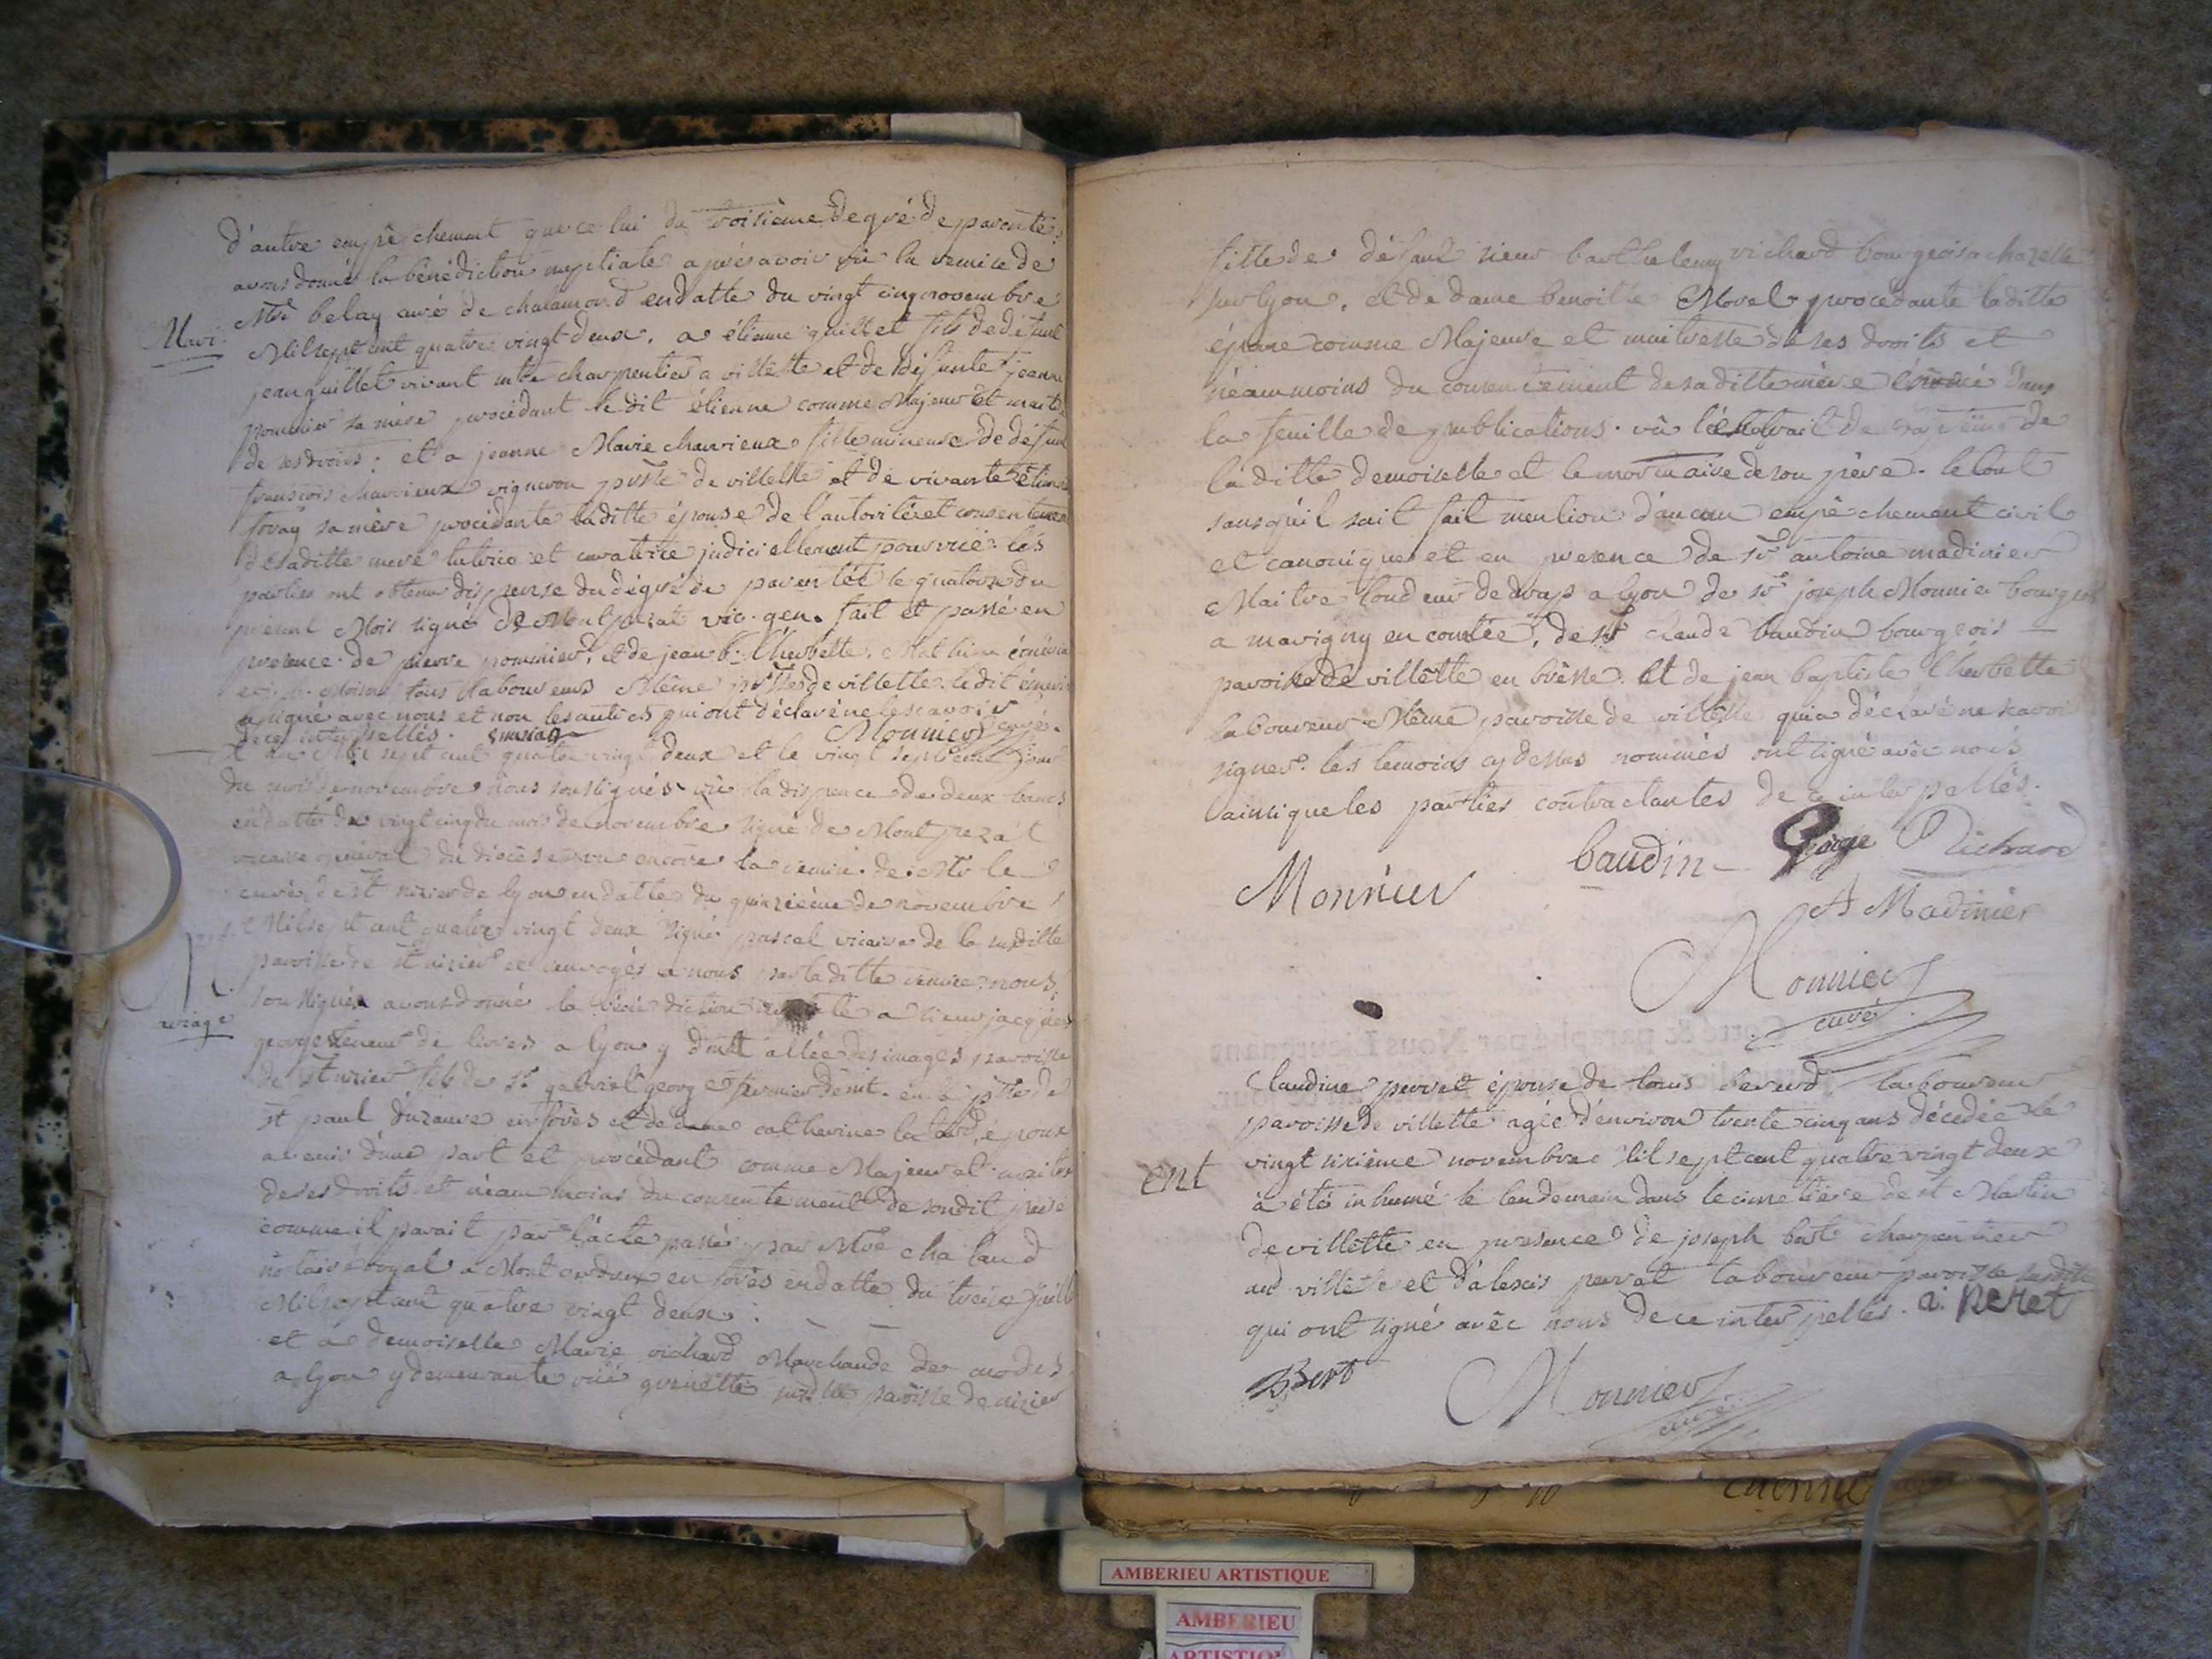 d'autre empêchement que celui du troisième degré de parenté,
avons donné la bénédiction nuptiale après avoir vû la remise de
Mre belay curé de chalamond en datte du vingt cinq novembre
Mari:
Mil sept cent quatre vingt deux, a étienne guillet fils de défunt
jean guillet vivant mtre charpentier a villette et de défunte jeanne
pommier sa mère procédant le dit étienne comme Majeur et maitre
de ses droits; et a jeanne Marie charrieux fille mineure de défunt
françois charrieux vigneron psse de villette et de vivante
sa mère procédante la ditte épouse de l'autorité et consentement
de sa ditte mere tutrice et curatrice judiciellement pourvuë. les
parties ont obtenu dispense du dégré de parentée le quatorze du
présent Mois signé de Montpezat vic. gen. fait et passé en
presence de pierre pommier, et de jean b. Cherbette, Mathieu
tous laboureurs Même psse de villette. le dit
a signé avec nous et non les autres qui ont déclaré ne le scavoir
de ce interpellés. Monnier curé.
L'an Mil sept cent quatre vingt deux et le vingt septieme jour
du mois de novembre nous soussignés vû la dispence de deux bancs
en datte du vingt cinq du mois de novembre signé de Montpezat
vicaire général du diocèse vu encore la remise de Mr le
curé de St nizier de lyon en datte du quinzième de novembre
Mil sept cent quatre vingt deux signé pascal vicaire de la susditte
paroisse de st nizier et renvoyés a nous par la ditte remise: nous,
soussignés avons donné la bénédiction nuptiale a sieur jacques
george teneur de livres a lyon y dmt allée des images paroisse
riage
de St nizier fils de sr gabriel george fermier demt. en la psse de
st paul d'uzaure en forès et de dame catherine époux
a venir d'une part et procédant comme Majeur et maitre
de ses droits et néammoins du consentement de son dit père
comme il parait par l'acte passé par Mtre chaland
notaire royal a en forès en datte du treize juill
Mil sept cent quatre vingt deux:
et à demoiselle Marie richard Marchande de modes
a lyon y demeurante ruë grenette susd paroisse de nizier
fille de défunt sieur barthelemy richard bourgeois a chazelle
sur lyon, et de dame benoitte Morel procédante la ditte
épouse comme Majeure et maitresse de ses droits et
néammoins du consentement de sa ditte mère énoncé dans
la feuille de publications. vû l'extrait de baptême de
la ditte demoiselle et le mortuaire de son père. le tout
sans qu'il sait fait mention d'aucun empêchement civil
et canonique et en presence de sr antoine madinier
Maitre tondeur de drap a lyon de sr joseph Monnier bourgeois
a mavigny en comtée, de sr claude baudin bourgeois
paroisse de villêtte en brêsse. et de jean baptiste Cherbette
laboureur Même paroisse de villette qui a déclaré ne scavoi
signer. les temoins cy dessus nommés ont signé avèc nous
ainsi que les parties contractantes de ce interpellés.
baudin George Richard
Monnier
A Madinier
Monnier
curé
Claudine perret épouse de louis laboureur
paroisse de villette agée d'environ trente cinq ans décedée le
ent
vingt sixième novembre Mil sept cent quatre vingt deux
à été inhumé le lendemain dans le cimetière de st Martin
de villêtte en presence de joseph charpentier
aud villêtte et d'alexis perret laboureur paroisse susditte
qui ont signé avêc nous de ce interpellés. a. Peret
Bert
Monnier
curé
AMBERIEU ARTISTIQUE
AMBERIEU
ARTISTIQUE